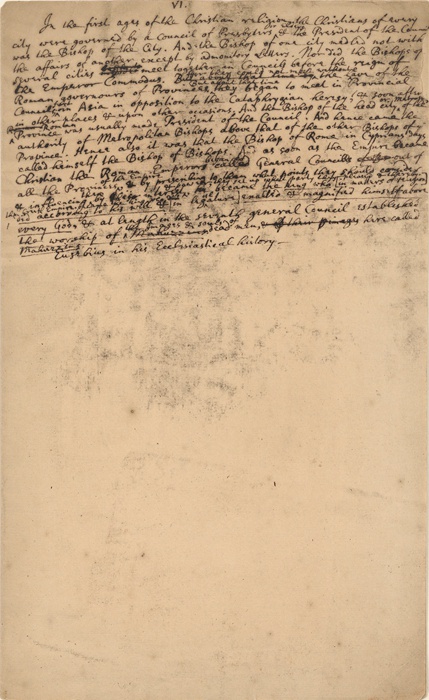 VI.
In the first ages of the Christian religion the Christians of every
city were governed by a Council of Presbyters & the President of the Council
was the Bishop of the City. And the Bishop of one city medled not with
the affairs of another except by admonitory Letters. Nor did the Bishops of
several cities meet together in Councils before the reign of
the Emperor Commodus. But
Roman governours of Provinces they began to meet in Provincial
Councils in Asia in opposition to the Cataphrygian heresy & soon after
in other places & upon other occasions. And the Bishop of the head city
Province was usually made President of the Council: And hence came the
authority of Metropolitan Bishops above that of the other Bishops
Province. Hence also it was that the Bishop of Rome in Cyprians days
called himself the Bishop of Bishops. And as soon as the Empire became
Christian the Roman Emperors General Councils out of
all the Provinces & by prescribing what points they should
& influencing by
did according to his will & exalted & magnified himself above
every God, & at length in the seventh general Council established
the worship of dead men, here called
Mahuzzims.
Eusebius in his Ecclesiastical history.